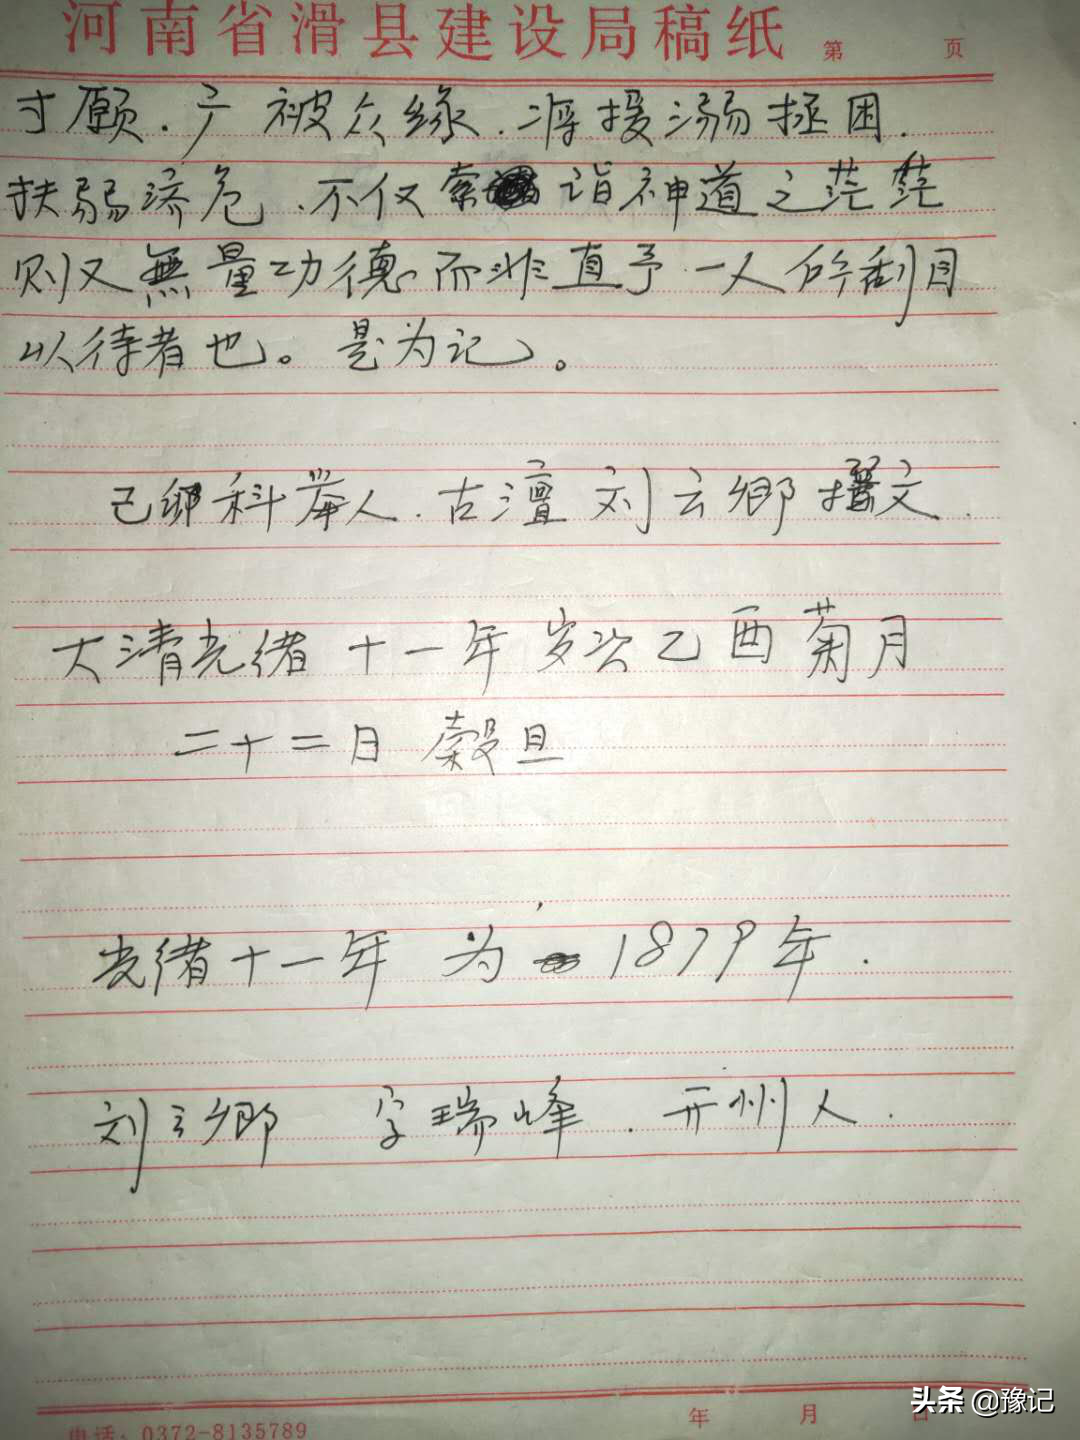 河南省滑县建设局稿纸 第 页
寸愿.广被众缘.将援溺拯困.
扶弱济危.不仅索诣神道之茫茫
则又無量功德。而非直予一人所利月
以待者也。是为记。
己卯科举人.古澶刘云鄉撰文.
大清光绪十一年岁次乙酉菊月
二十二日 榖旦
光绪十一年 为 1879年.
刘云鄉 字瑞峰.开州人.
电话：0372-8135789 年 月 日
头条 @豫记